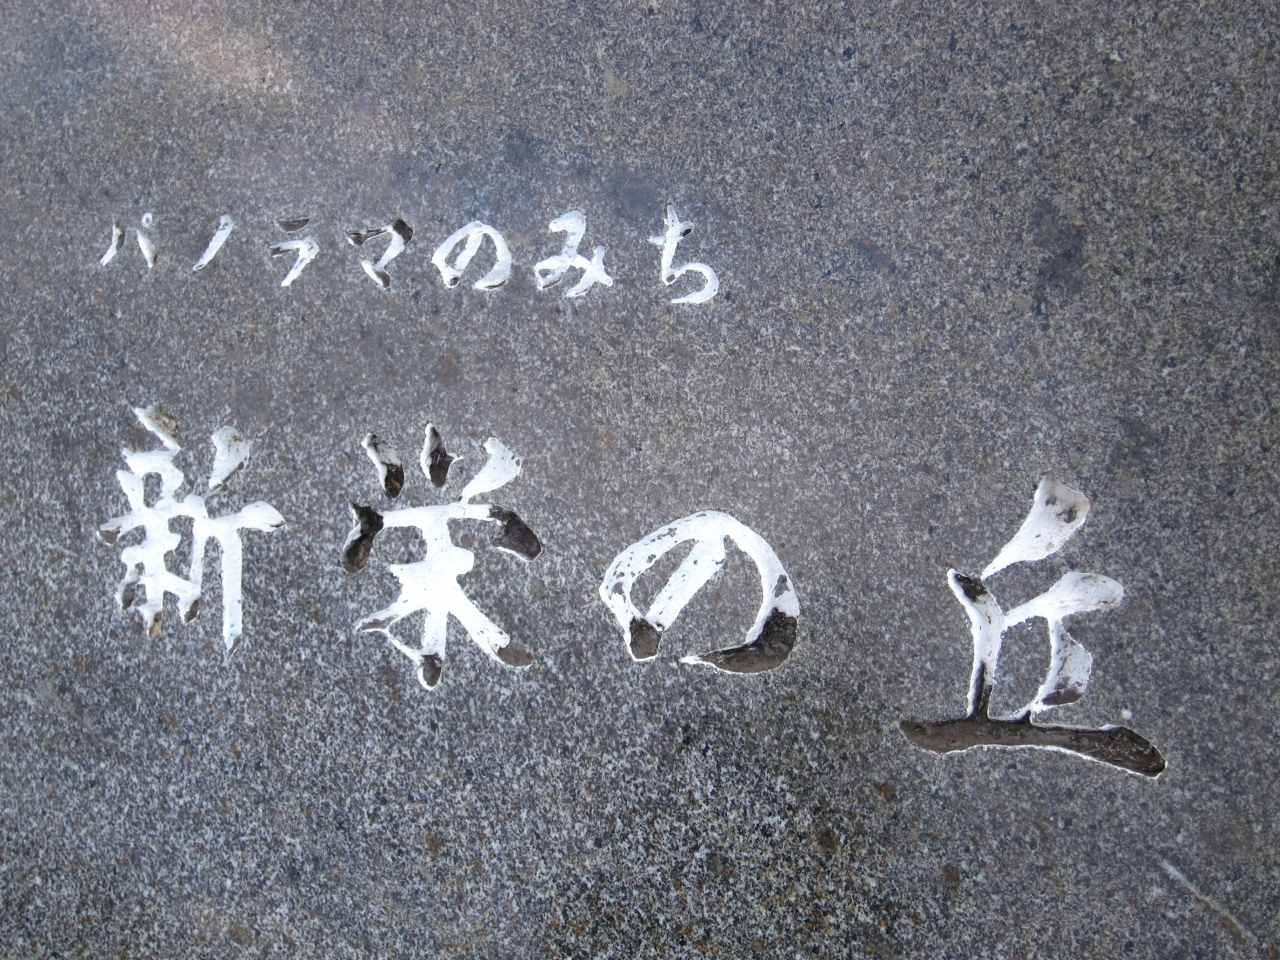 パノラマのみち
新栄の丘